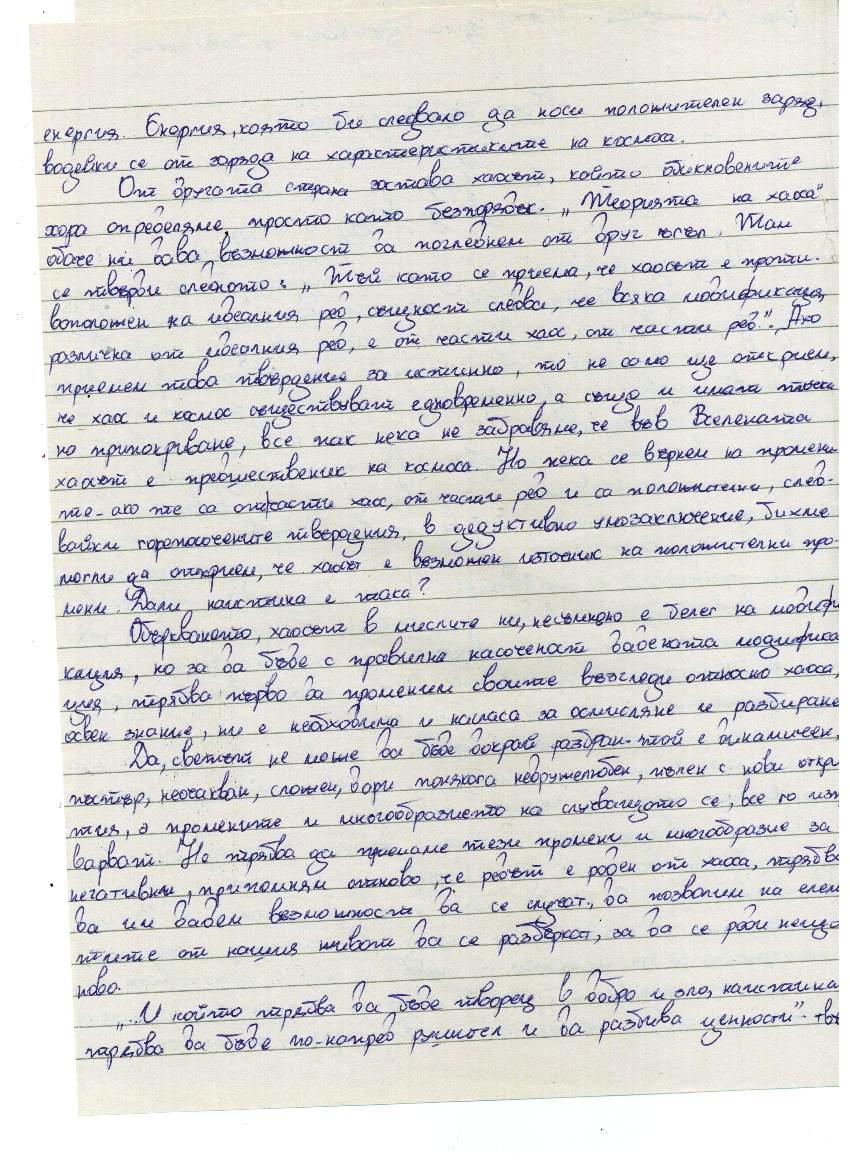 енергия. Енергия, която би следвало да носи положителен заряд,
водейки се от заряда на характеристиките на космоса.
От другата страна застава хаосът, който обикновените
хора определяме просто като безпорядък. „Теорията на хаоса"
обаче ни дава възможност да погледнем от друг ъгъл. Там
се твърди следното: „Тъй като се приема, че хаосът е проти-
воположен на идеалния ред, същност следва, че всяка модификация,
различна от идеалния ред, е от части хаос, от части ред." Ако
приемем това твърдение за истинно, то не само ще открием,
че хаос и космос съществуват едновременно, а също и имат
но припокриване, все пак нека не забравяме, че във Вселената
хаосът е предшественик на космоса. Но нека се върнем на промени
те - ако те са отчасти хаос, от части ред и са положителни, след-
вайки горепосочените твърдения, в дедуктивно умозаключение, бихме
могли да открием, че хаосът е възможен източник на положителни про-
мени. Дали наистина е така?
Объркването, хаосът в мислите ни, несъмнено е белег на модифи
кация, но за да бъде с правилна насоченост дадената модифика
ция, трябва първо да променим своите възгледи относно хаоса,
освен знание, ни е необходима и нагласа за осмисляне и разбиране
Да, светът не може да бъде докрай разбран - той е динамичен,
пъстър, неочакван, сложен, дори понякога недружелюбен, пълен с нови откри
тия, а промените и многообразието на случващото се, все го изп
варват. Не трябва да приемаме тези промени и многообразие за
негативни, припомням отново, че редът е роден от хаоса, трябва
да им дадем възможност да се случат, да позволим на елем
тите от нашия живот да се разбъркат, за да се роди нещо
ново.
„...И който трябва да бъде творец в добро и зло, наистина
трябва да бъде по-напред рушител и да разбива ценности" - тв